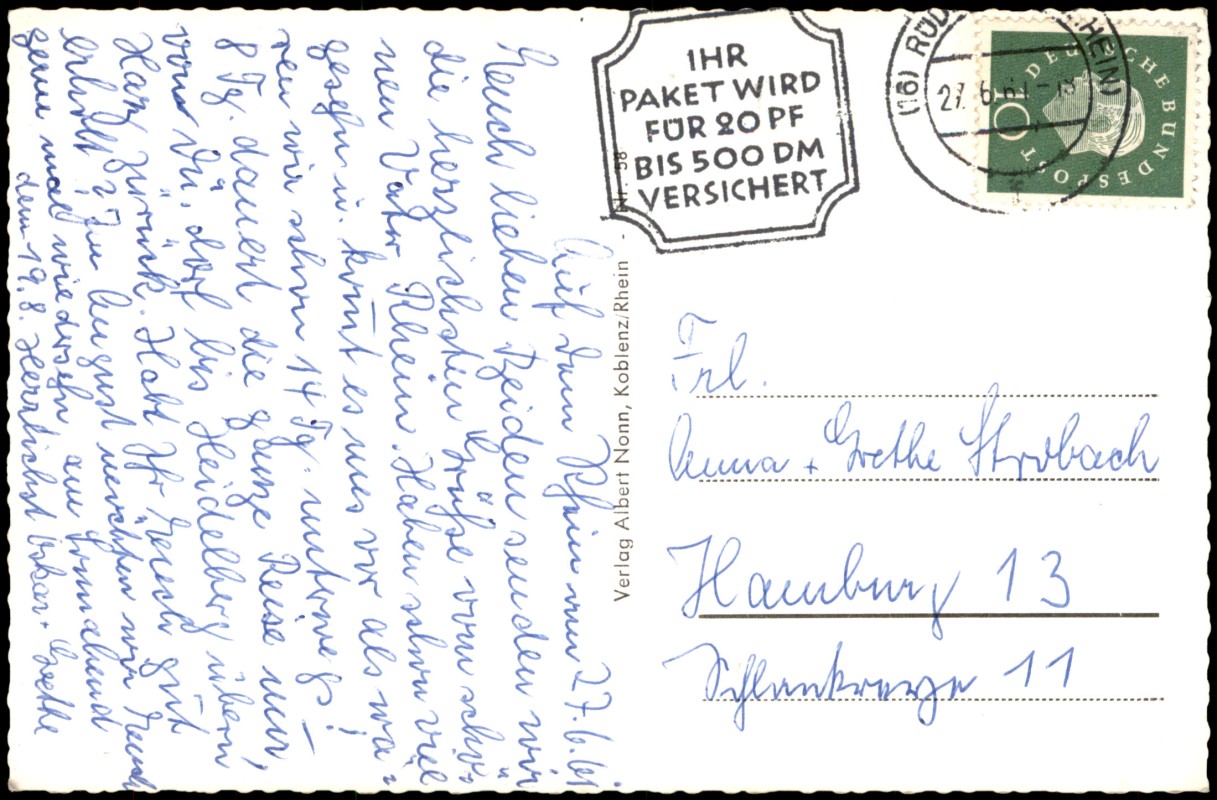 Auf dem Rhein den 27.6.61
Euch lieben Beiden senden wir
die herzlichsten Grüße vom schö-
nen Vater Rhein. Haben schon viel
gesehn u. kommt es uns vor als wä-
ren wir schon 14 Tg. unterwegs!
8 Tg. dauert die ganze Reise nur,
vom Dü.dorf bis Heidelberg übern
Harz zurück. Habt Ihr Euch gut
erholt? Im August möchten wir Euch
gerne mal wiedersehn am Sonnabend
dem 19.8. Herzlichst Oskar + Grethe
Verlag Albert Nonn, Koblenz/Rhein - Nr. 58
IHR
PAKET WIRD
FÜR 20 PF
BIS 500 DM
VERSICHERT
(16) RÜD HEIN)
27.6.61-18
f
DEUTSCHE BUNDESPOST
10
Frl.
Anna + Grethe Strobach
Hamburg 13
Schlankreye 11